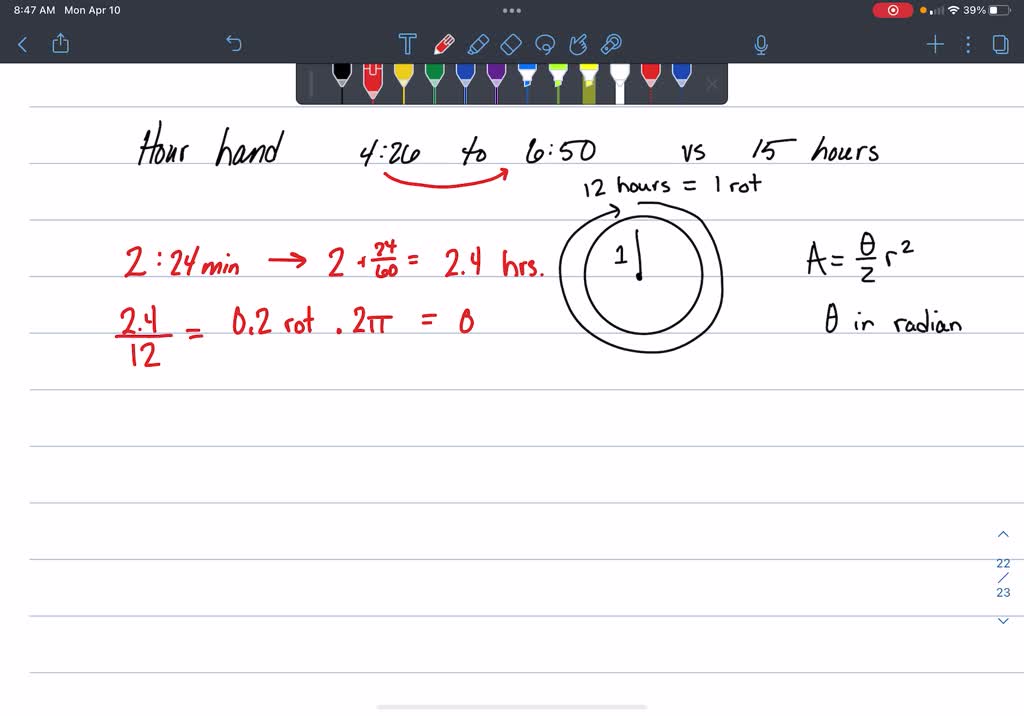 8:47 AM Mon Apr 10 39%
Hour hand 4:26 to 6:50 vs 15 hours
12 hours = 1 rot
2:24 min → 2 + 24/60 = 2.4 hrs.
1
A = θ/2 r²
2.4/12 = 0.2 rot . 2π = 0
θ in radian
22
/
23